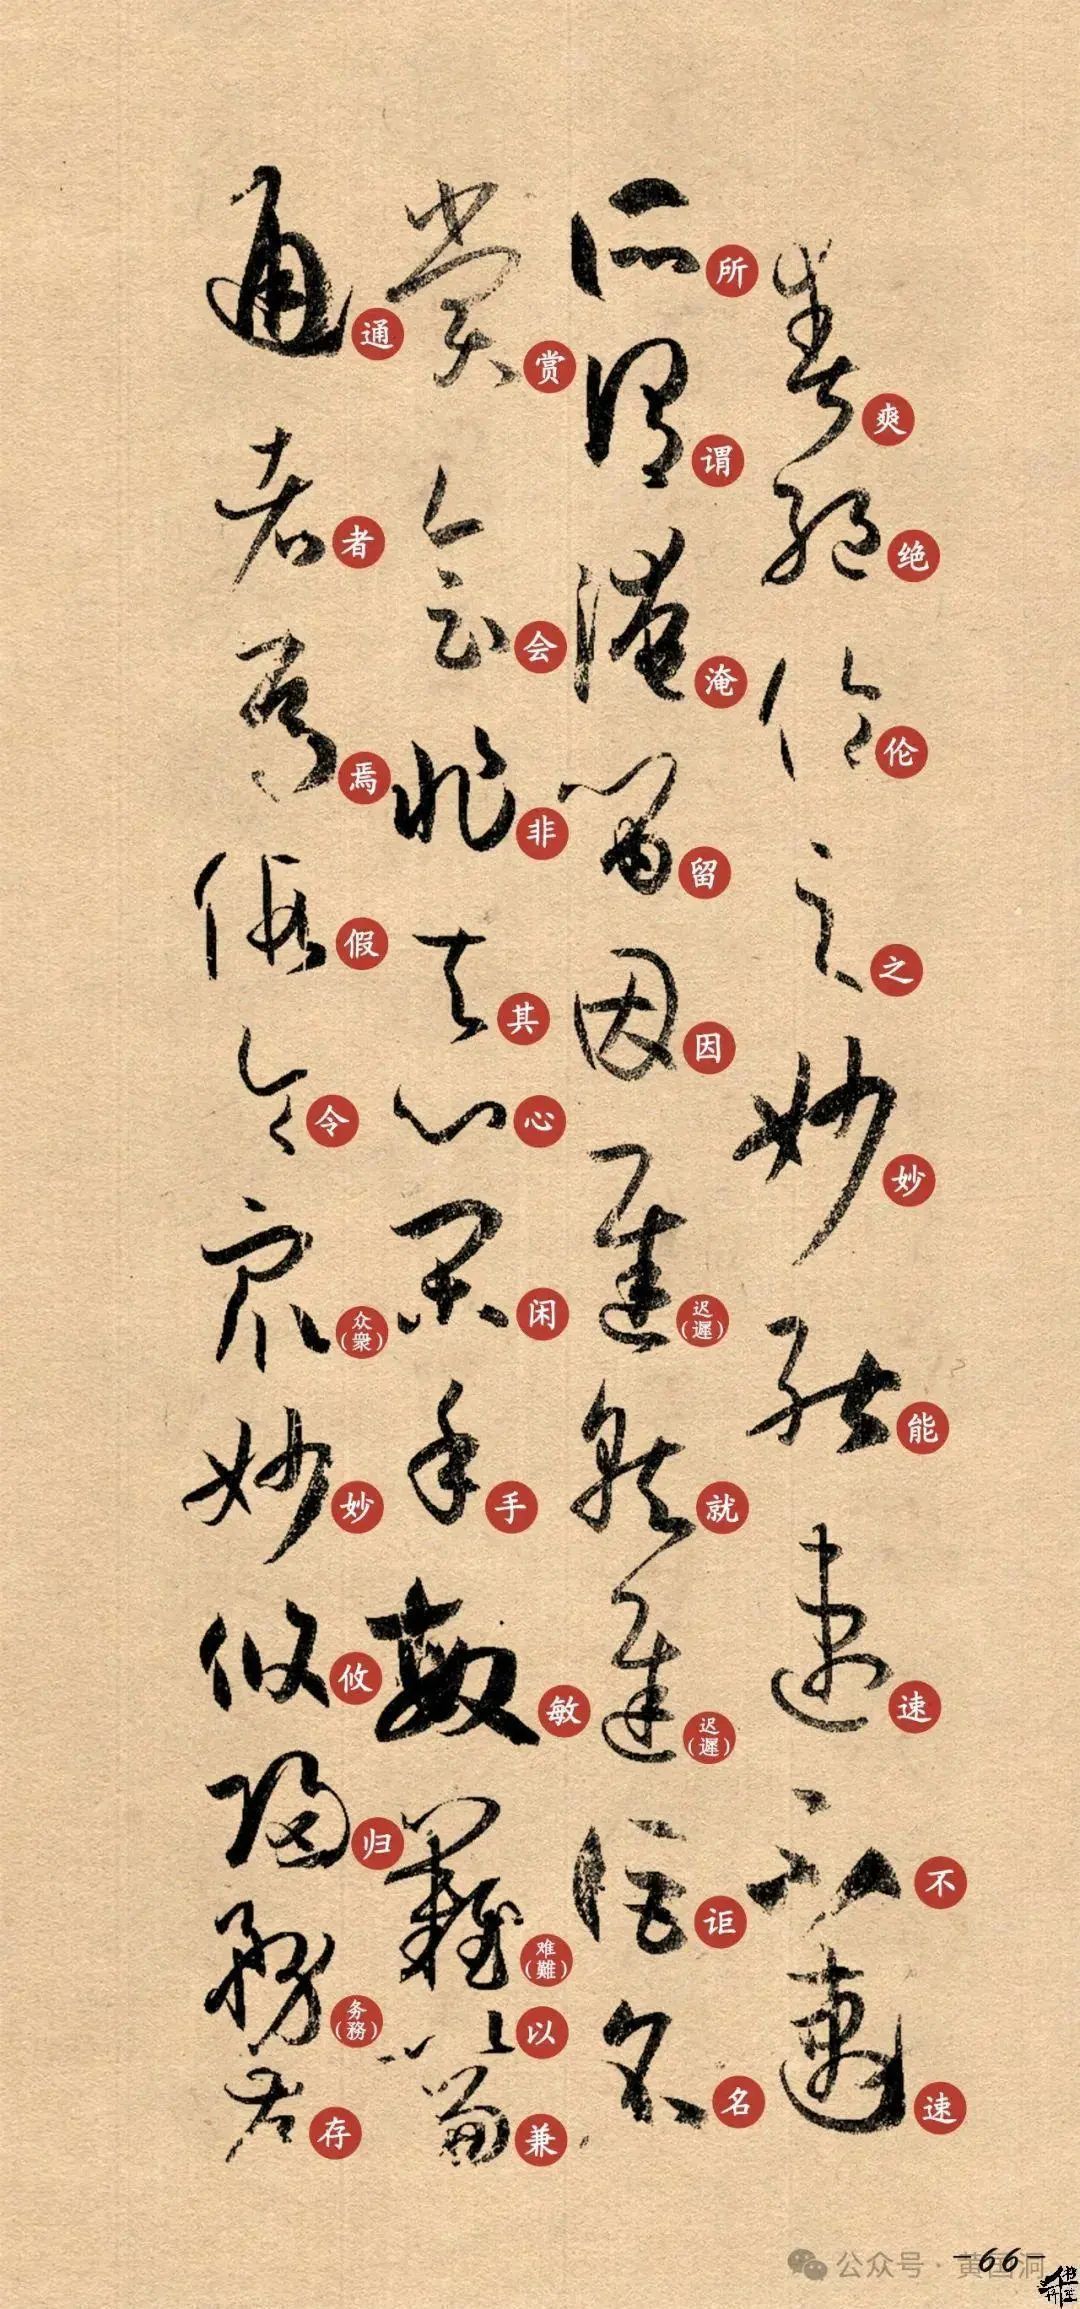 爽绝伦之妙能速不速
所谓淹留因迟(遲)就迟(遲)讵名
赏会非其心闲手敏难(難)以兼
通者焉假令众(衆)妙攸归务(務)存
公众号·黄国洞
-66-